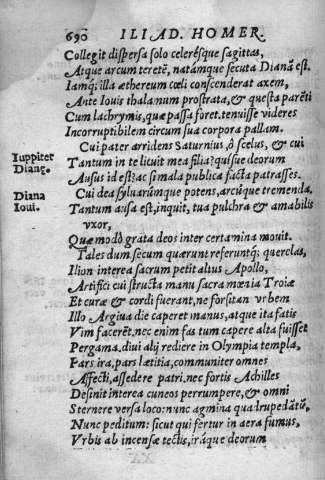 690 ILIAD. HOMER.
Collegit dispersa solo celerésque sagittas,
Atque arcum teretē, natámque secuta Dianā est.
Iamq; illa æthereum cœli conscenderat axem,
Ante Iouis thalamum prostrata, & questa parēti
Cum lachrymis, quæ passa foret. tenuisse videres
Incorruptibilem circum sua corpora pallam.
Cui pater arridens Saturnius, ô scelus, & cui
Iuppiter
Dianę.
Tantum in te licuit mea filia? quísue deorum
Ausus id est? ac si mala publicæ facta patrasses.
Diana
Ioui.
Cui dea syluarúmque potens, arcúque tremenda,
Tantum ausa est, inquit, tua pulchra & amabilis
vxor,
Quæ modò grata deos inter certamina mouit.
Tales dum secum quærunt referuntq; querelas,
Ilion interea sacrum petit altus Apollo,
Artifici cui structa manu sacræ mœnia Troiæ
Et curæ & cordi fuerant, ne forsitan vrbem
Illo Argiua die caperet manus, atque ita fatis
Vim facerēt, nec enim fas tum capere alta fuisset
Pergama. diui alij rediere in Olympia templa,
Pars ira, pars lætitia, communiter omnes
Affecti, assedere patri, nec fortis Achilles
Desinit interea cuneos perrumpere, & omni
Sternere versa loco: nunc agmina quadrupedātū,
Nunc peditum: sicut qui fertur in aera fumus,
Vrbis ab incensæ tectis, iráque deorum